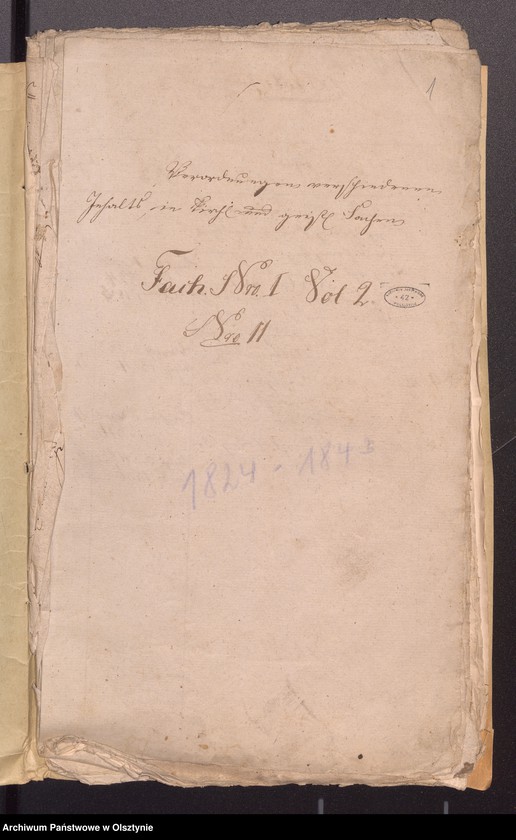 1
Verordnungen verschiedenen
Inhalts in Kirch und geistl Sachen
Fach. Nro. 1 Vol 2.
42
Nro 11
1824 - 1845
Archiwum Państwowe w Olsztynie